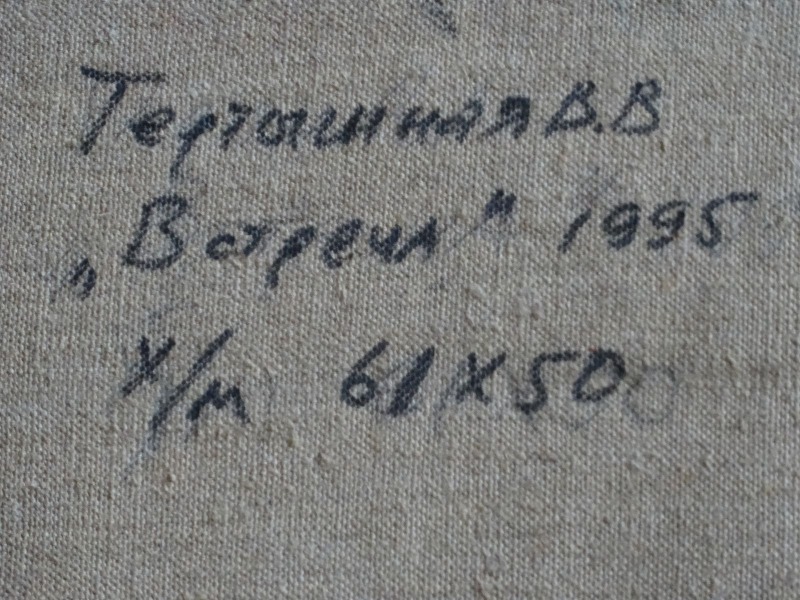 Тертышная В.В
„Встреча" 1995
х/м 61х50